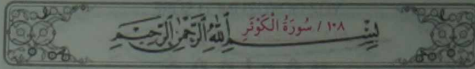 ١٠٨ / سُورَةُ الْكَوْثَرِ
بِسْمِ اللَّهِ الرَّحْمَٰنِ الرَّحِيمِ